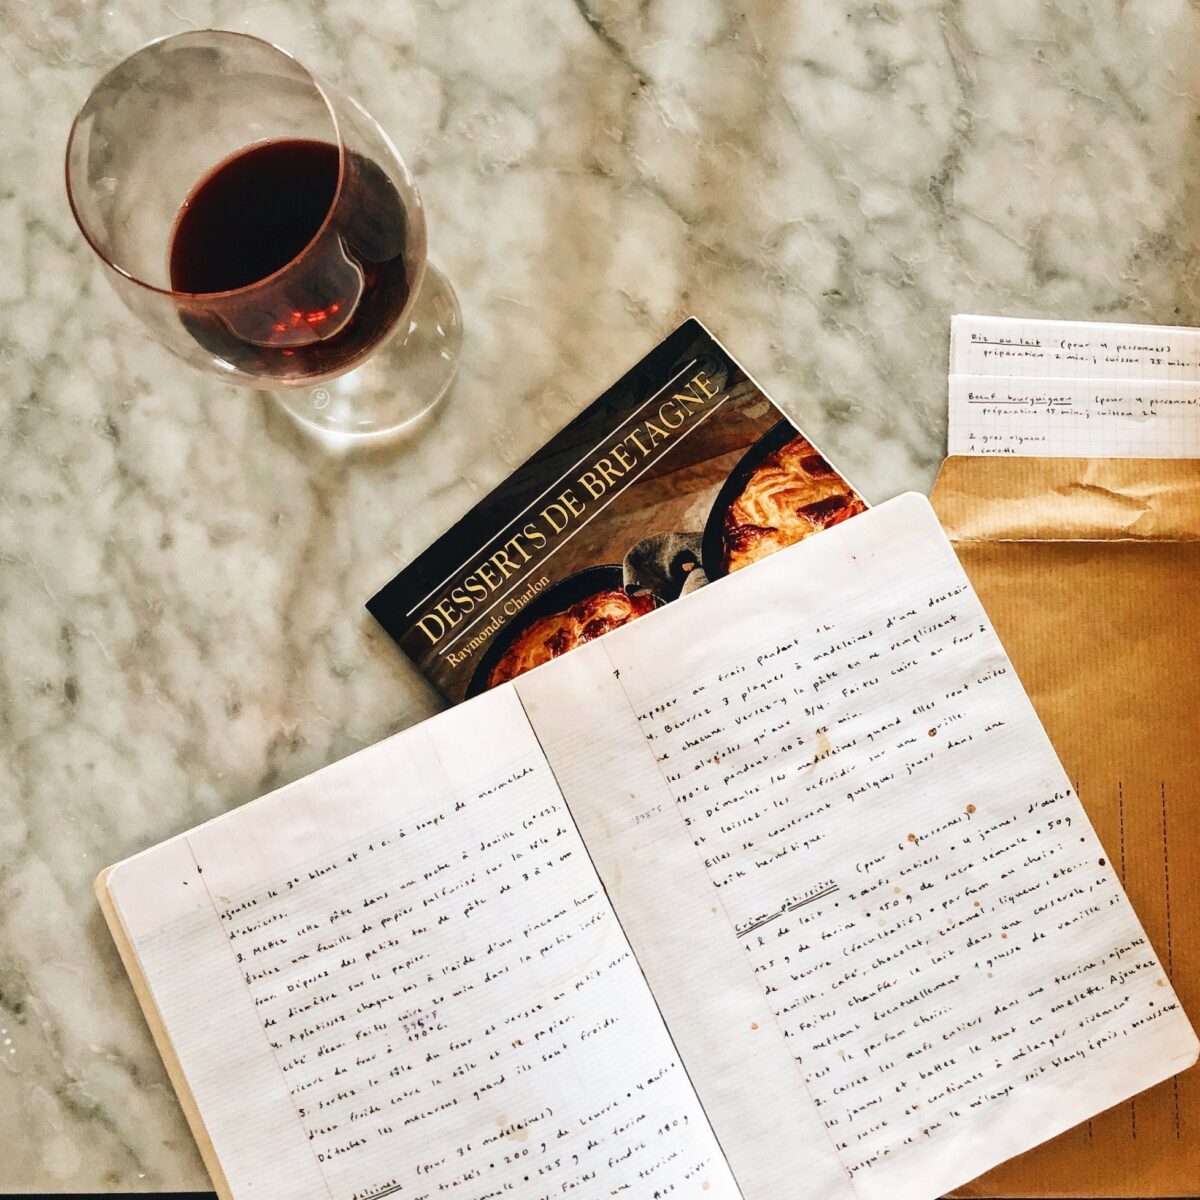 DESSERTS DE BRETAGNE
Raymonde Charlon
Riz au lait (pour 4 personnes)
préparation 2 min.; cuisson 35 min.
Bœuf bourguignon (pour 4 personnes)
préparation 15 min.; cuisson 2h
2 gros oignons
1 carotte
6
ajoutez le 3e blanc et 1 c. à soupe de marmelade
d'abricots.
3. Mettez cette pâte dans une poche à douille (n°12).
Étalez une feuille de papier sulfurisé sur la tôle du
four. Déposez des petits tas de pâte de 3 à 4 cm
de diamètre sur le papier.
4. Aplatissez chaque tas à l'aide d'un pinceau hum-
ecté d'eau. Faites cuire 20 min dans la partie infé-
rieure du four à 190°C.
375°F
5. Sortez la tôle du four et versez un petit verre
d'eau froide entre la tôle et le papier.
Détachez les macarons quand ils sont froids.
(pour 36 madeleines)
non traités • 200 g de beurre • 4 œufs •
semoule • 225 g de farine
Faites fondre 180 g
une terrine.
7
reposer au frais pendant 1h.
4. Beurrez 3 plaques à madeleines d'une douzai-
ne chacune. Versez-y la pâte en ne remplissant
les alvéoles qu'aux 3/4. Faites cuire au four à
190°C pendant 10 à 12 min.
375°F
5. Démoulez les madeleines quand elles sont cuites
et laissez-les refroidir sur une grille.
Elles se conservent quelques jours dans une
boîte hermétique.
Crème pâtissière (pour 6 personnes)
1 l de lait • 2 œufs entiers • 4 jaunes d'œufs
125 g de farine • 150 g de sucre semoule • 50g
de beurre (facultatif) • parfum au choix :
vanille, café, chocolat, caramel, liqueur, etc...
1. Faites chauffer le lait dans une casserole, en
y mettant éventuellement 1 gousse de vanille si
c'est le parfum choisi.
2. Cassez les œufs entiers dans une terrine, ajoutez
les jaunes et battez le tout en omelette. Ajoutez
le sucre et continuez à mélanger vivement
jusqu'à ce que le mélange soit blanc, épais, mousseux.